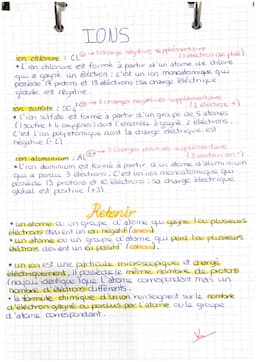 IONS
ion chlorure : CL⊖ → 1 charge négative supplémentaire
(1 électron de plus)
• L'ion chlorure est formé à partir d'un atome de chlore
qui a gagné un électron : c'est un ion monoatomique qui
possède 17 protons et 18 électrons : sa charge électrique
globale est négative.
ion sulfate : SO4 2⊖ → 2 charges négatives supplémentaire
(2 électrons +)
• L'ion sulfate est formé à partir d'un groupe de 5 atomes
(1 soufre + 4 oxygènes) dont l'ensemble à gagné 2 électrons.
C'est l'ion polyatomique dont la charge électrique est
négative (-2)
ion aluminium : AL 3+ → 3 charges positives supplémentaire
(3 électron en -)
• L'ion aluminium est formé à partir d'un atome d'aluminium
qui a perdu 3 électrons. C'est un ion monoatomique qui
possède 13 protons et 10 électrons : sa charge électrique
global est positive (+3).
Retenir
• un atome ou un groupe d'atome qui gagne 1 ou plusieurs
électrons devient un ion négatif (anion)
• un atome ou un groupe d'atome, qui perd 1 ou plusieurs
électrons devient un ion positif (cation)
• un ion est une particule microscopique et chargé
électriquement. Il possède le même nombre de protons
(noyau identique) que l'atome correspondant mais un
nombre d'électrons différents.
• la formule chimique d'un ion renseignent sur le nombre
d'électron gagné ou perdus par l'atome ou le groupe
d'atome correspondant.